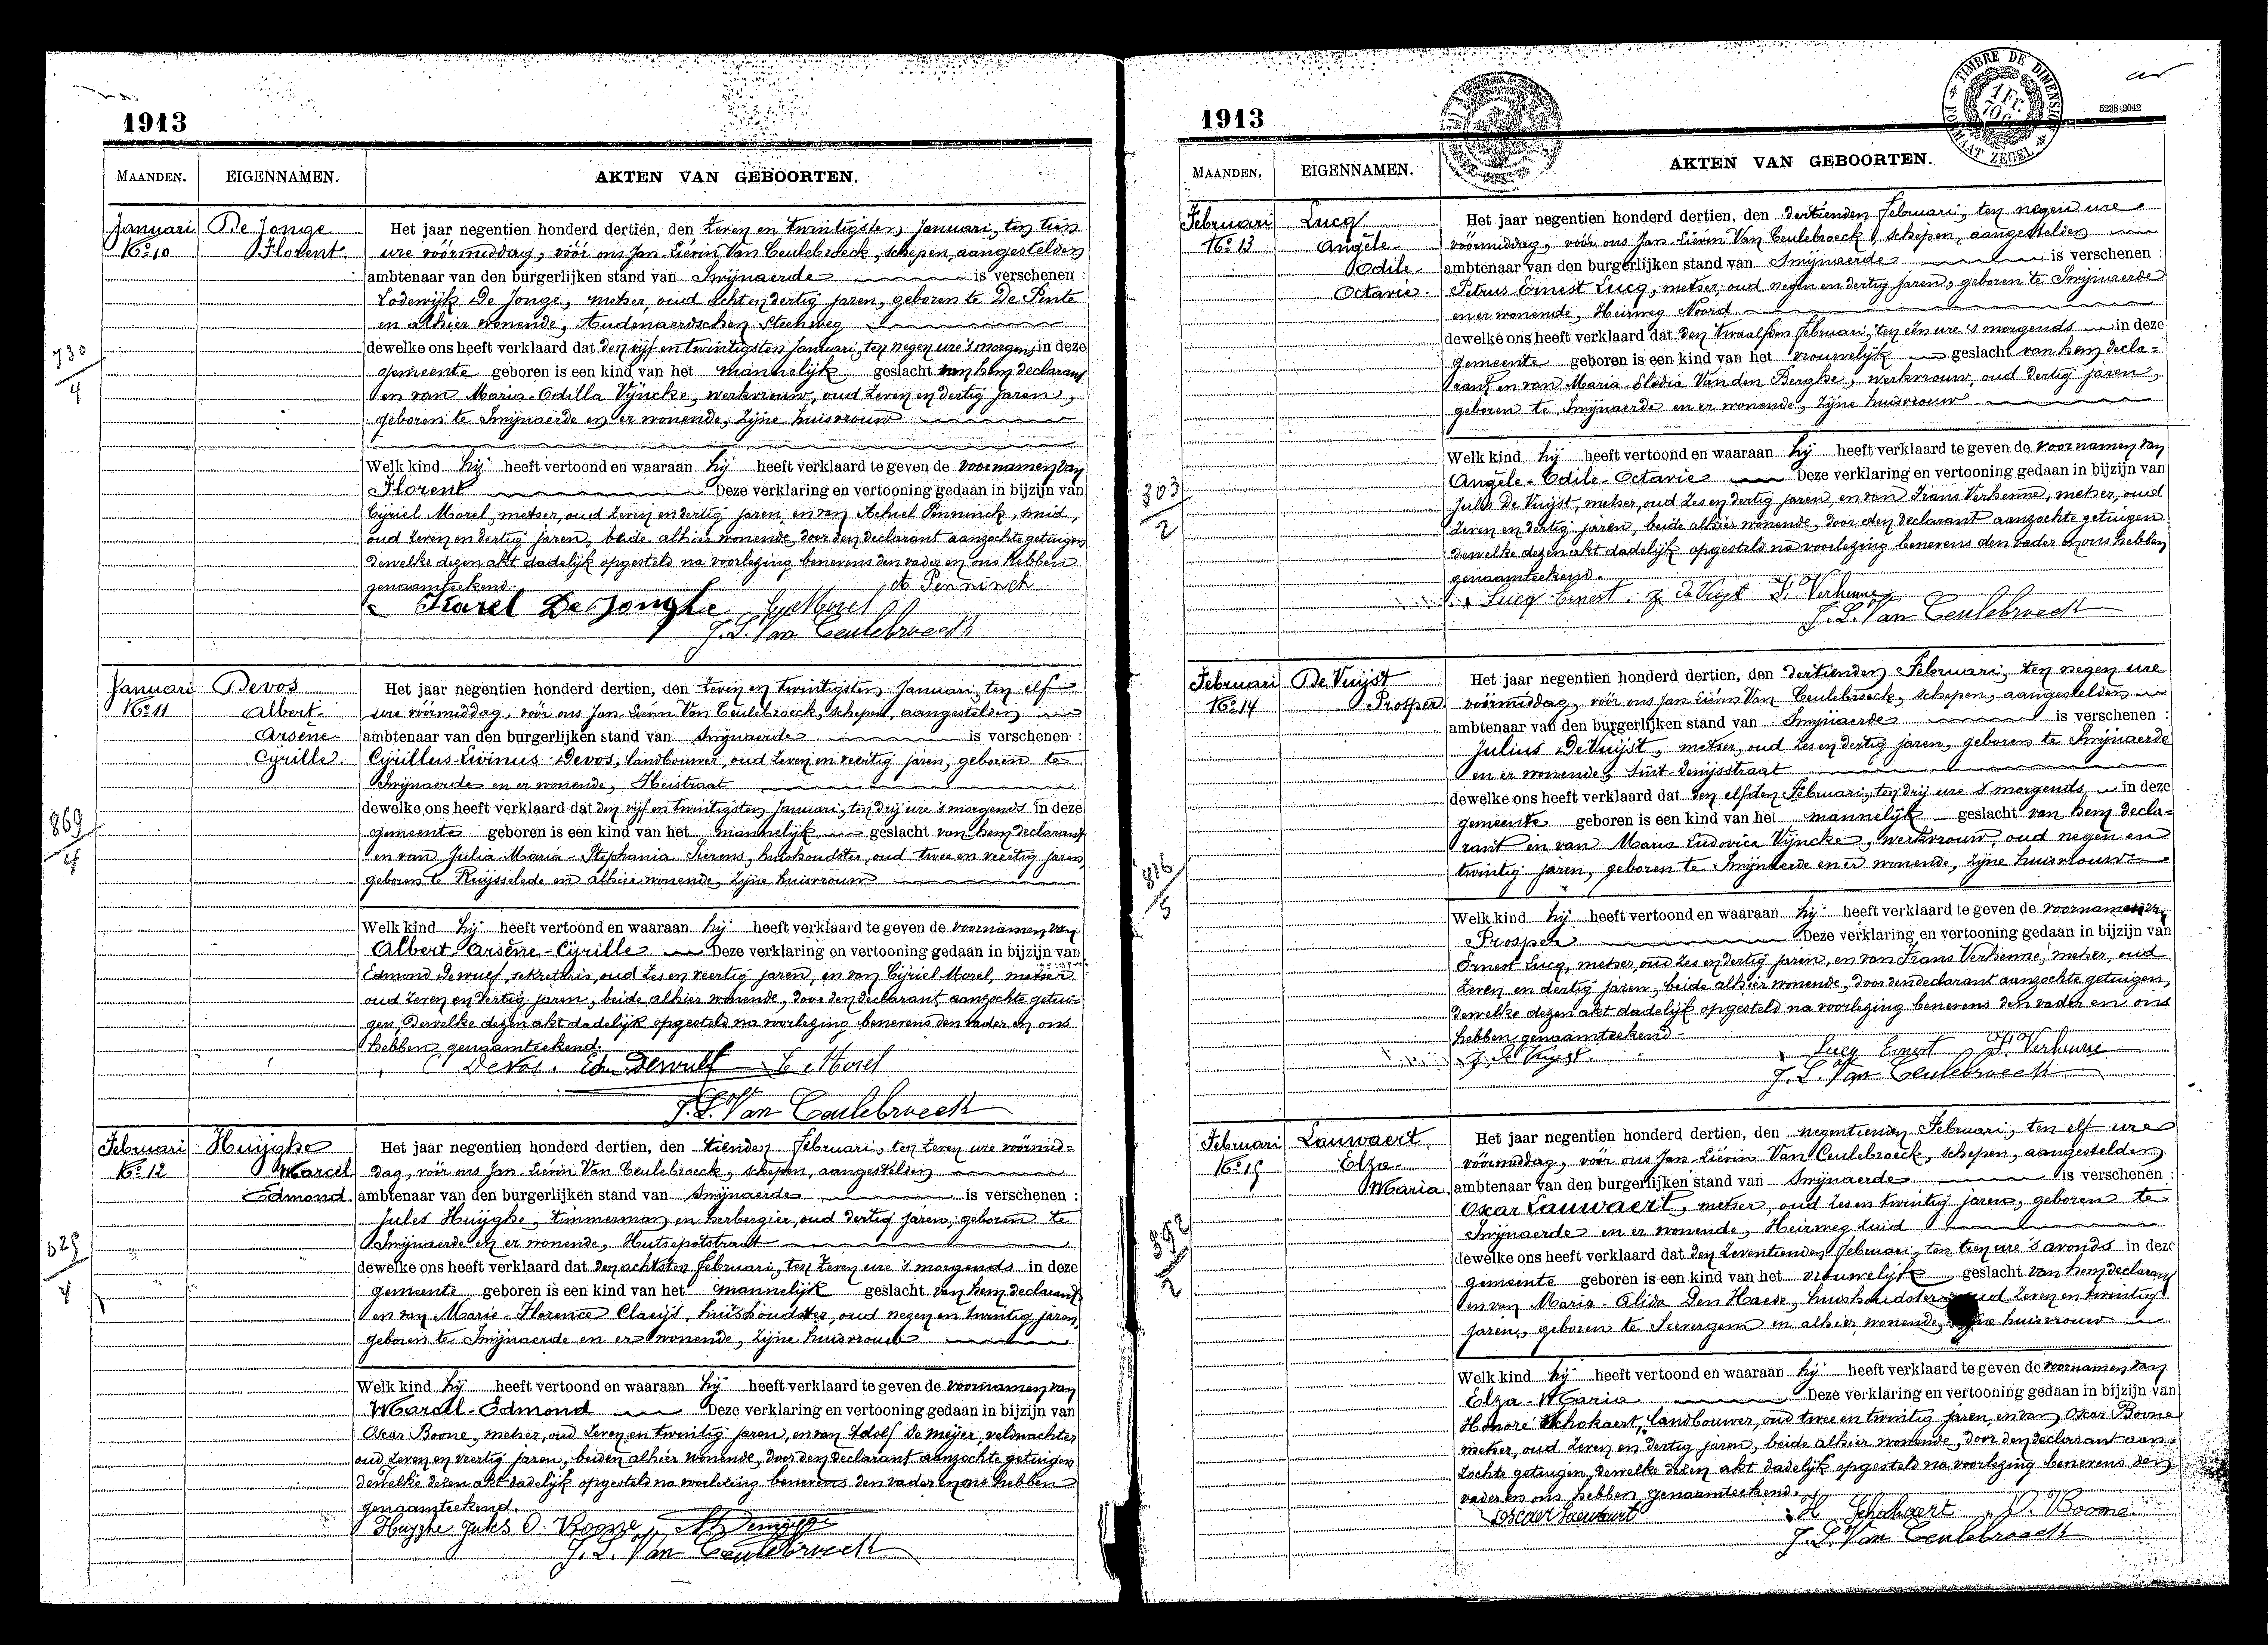 1913
MAANDEN. EIGENNAMEN. AKTEN VAN GEBOORTEN.
Januari
No 10
De Jonge
Florent.
730
4
Het jaar negentien honderd dertien, den zeven en twintigsten Januari, ten tien
ure vóórmiddag, vóór ons Jan-Liévin Van Ceulebroeck, schepen, aangestelden
ambtenaar van den burgerlijken stand van Swijnaerde is verschenen :
Lodewijk De Jonge, metser, oud acht en dertig jaren, geboren te De Pinte
en alhier wonende, Audenaerdschen Steenweg
dewelke ons heeft verklaard dat den vijf en twintigsten Januari, ten negen ure 's morgens in deze
gemeente geboren is een kind van het mannelijk geslacht van hem declarant
en van Maria-Odilla Vijncke, werkvrouw, oud zeven en dertig jaren,
geboren te Swijnaerde en er wonende, zijne huisvrouw
Welk kind hij heeft vertoond en waaraan hij heeft verklaard te geven de voornamen van
Florent Deze verklaring en vertooning gedaan in bijzijn van
Cijriel Morel, metser, oud zeven en dertig jaren, en van Achiel Penninck, smid,
oud zeven en dertig jaren, beide alhier wonende, door den declarant aanzochte getuigen
dewelke dezen akt dadelijk opgesteld na voorlezing benevens den vader en ons hebben
genaamteekend.
A. Penninck
Karel De Jonghe C. Morel
J. L. Van Ceulebroeck
Januari
No 11
Devos
Albert-
Arsène-
Cyrille.
869
4
Het jaar negentien honderd dertien, den zeven en twintigsten Januari, ten elf
ure vóórmiddag, vóór ons Jan-Liévin Van Ceulebroeck, schepen, aangestelden
ambtenaar van den burgerlijken stand van Swijnaerde is verschenen :
Cyrillus-Livinus Devos, landbouwer, oud zeven en veertig jaren, geboren te
Swijnaerde en er wonende, Heistraat
dewelke ons heeft verklaard dat den vijf en twintigsten Januari, ten drij ure 's morgends in deze
gemeente geboren is een kind van het mannelijk geslacht van hem declarant
en van Julia-Maria-Stephania Sierens, huishoudster, oud twee en veertig jaren,
geboren te Ruijsselede en alhier wonende, zijne huisvrouw
Welk kind hij heeft vertoond en waaraan hij heeft verklaard te geven de voornamen van
Albert-Arsène-Cyrille Deze verklaring en vertooning gedaan in bijzijn van
Edmond Dewulf, sekretaris, oud zes en veertig jaren, en van Cijriel Morel, metser
oud zeven en dertig jaren, beide alhier wonende, door den declarant aanzochte getui-
gen, dewelke dezen akt dadelijk opgesteld na voorlezing benevens den vader en ons
hebben genaamteekend.
C. Devos. Ed. Dewulf C. Morel
J. L. Van Ceulebroeck
Februari
No 12
Huijghe
Marcel
Edmond.
4
Het jaar negentien honderd dertien, den tienden Februari, ten zeven ure vóórmid-
dag, vóór ons Jan-Liévin Van Ceulebroeck, schepen, aangestelden
ambtenaar van den burgerlijken stand van Swijnaerde is verschenen :
Jules Huijghe, timmerman en herbergier, oud dertig jaren, geboren te
Swijnaerde en er wonende, Hutsepotstraat
dewelke ons heeft verklaard dat den achtsten Februari, ten zeven ure 's morgends in deze
gemeente geboren is een kind van het mannelijk geslacht van hem declarant
en van Marie-Florence Claeijs, huishoudster, oud negen en twintig jaren,
geboren te Swijnaerde en er wonende, zijne huisvrouw
Welk kind hij heeft vertoond en waaraan hij heeft verklaard te geven de voornamen van
Marcel-Edmond Deze verklaring en vertooning gedaan in bijzijn van
Oscar Boone, metser, oud zeven en twintig jaren, en van Adolf De Meijer, veldwachter
oud zeven en veertig jaren, beiden alhier wonende, door den declarant aanzochte getuigen
dewelke dezen akt dadelijk opgesteld na voorlezing benevens den vader en ons hebben
genaamteekend.
Huyghe Jules O. Boone
J. L. Van Ceulebroeck
1913
TIMBRE DE DIMENSION
FORMAAT ZEGEL
5238-2042
MAANDEN. EIGENNAMEN. AKTEN VAN GEBOORTEN.
Februari
No 13
Lucq
Angèle-
Odile-
Octavie.
303
2
Het jaar negentien honderd dertien, den dertienden Februari, ten negen ure
vóórmiddag, vóór ons Jan-Liévin Van Ceulebroeck, schepen, aangestelden
ambtenaar van den burgerlijken stand van Swijnaerde is verschenen :
Petrus-Ernest Lucq, metser, oud negen en dertig jaren, geboren te Swijnaerde
en er wonende, Heirweg Noord
dewelke ons heeft verklaard dat den twaalfden Februari, ten één ure 's morgends in deze
gemeente geboren is een kind van het vrouwelijk geslacht van hem decla-
rant en van Maria-Elodia Van den Berghe, werkvrouw, oud dertig jaren,
geboren te Swijnaerde en er wonende, zijne huisvrouw
Welk kind hij heeft vertoond en waaraan hij heeft verklaard te geven de voornamen van
Angèle-Odile-Octavie Deze verklaring en vertooning gedaan in bijzijn van
Jules De Vuijst, metser, oud zes en dertig jaren, en van Frans Verhenne, metser, oud
zeven en dertig jaren, beide alhier wonende, door den declarant aanzochte getuigen
dewelke dezen akt dadelijk opgesteld na voorlezing benevens den vader en ons hebben
genaamteekend.
Lucq Ernest J. De Vuyst F. Verhenne
J. L. Van Ceulebroeck
Februari
No 14
De Vuijst
Prosper
816
5
Het jaar negentien honderd dertien, den dertienden Februari, ten negen ure
vóórmiddag, vóór ons Jan-Liévin Van Ceulebroeck, schepen, aangestelden
ambtenaar van den burgerlijken stand van Swijnaerde is verschenen :
Julius De Vuijst, metser, oud zes en dertig jaren, geboren te Swijnaerde
en er wonende, Sint-Denijsstraat
dewelke ons heeft verklaard dat den elfden Februari, ten drij ure 's morgends in deze
gemeente geboren is een kind van het mannelijk geslacht van hem decla-
rant en van Maria Ludovica Vijncke, werkvrouw, oud negen en
twintig jaren, geboren te Swijnaerde en er wonende, zijne huisvrouw
Welk kind hij heeft vertoond en waaraan hij heeft verklaard te geven de voornamen van
Prosper Deze verklaring en vertooning gedaan in bijzijn van
Ernest Lucq, metser, oud zes en dertig jaren, en van Frans Verhenne, metser, oud
zeven en dertig jaren, beide alhier wonende, door den declarant aanzochte getuigen,
dewelke dezen akt dadelijk opgesteld na voorlezing benevens den vader en ons
hebben genaamteekend.
J. De Vuyst. Lucq Ernest F. Verhenne
J. L. Van Ceulebroeck
Februari
No 15
Lauwaert
Elza-
Maria
392
2
Het jaar negentien honderd dertien, den negentienden Februari, ten elf ure
vóórmiddag, vóór ons Jan-Liévin Van Ceulebroeck, schepen, aangestelden
ambtenaar van den burgerlijken stand van Swijnaerde is verschenen :
Oscar Lauwaert, metser, oud zes en twintig jaren, geboren te
Swijnaerde en er wonende, Heirweg Zuid
dewelke ons heeft verklaard dat den zeventienden Februari, ten tien ure 's avonds in deze
gemeente geboren is een kind van het vrouwelijk geslacht van hem declarant
en van Maria-Alida Den Haese, huishoudster oud zeven en twintig
jaren, geboren te Severgem en alhier wonende, zijne huisvrouw
Welk kind hij heeft vertoond en waaraan hij heeft verklaard te geven de voornamen van
Elza-Maria Deze verklaring en vertooning gedaan in bijzijn van
Honoré Schokaert, landbouwer, oud twee en twintig jaren, en van Oscar Boone
metser, oud zeven en dertig jaren, beide alhier wonende, door den declarant aan-
zochte getuigen, dewelke dezen akt dadelijk opgesteld na voorlezing benevens den
vader en ons hebben genaamteekend.
Oscar Lauwaert H. Schokaert O. Boone
J. L. Van Ceulebroeck